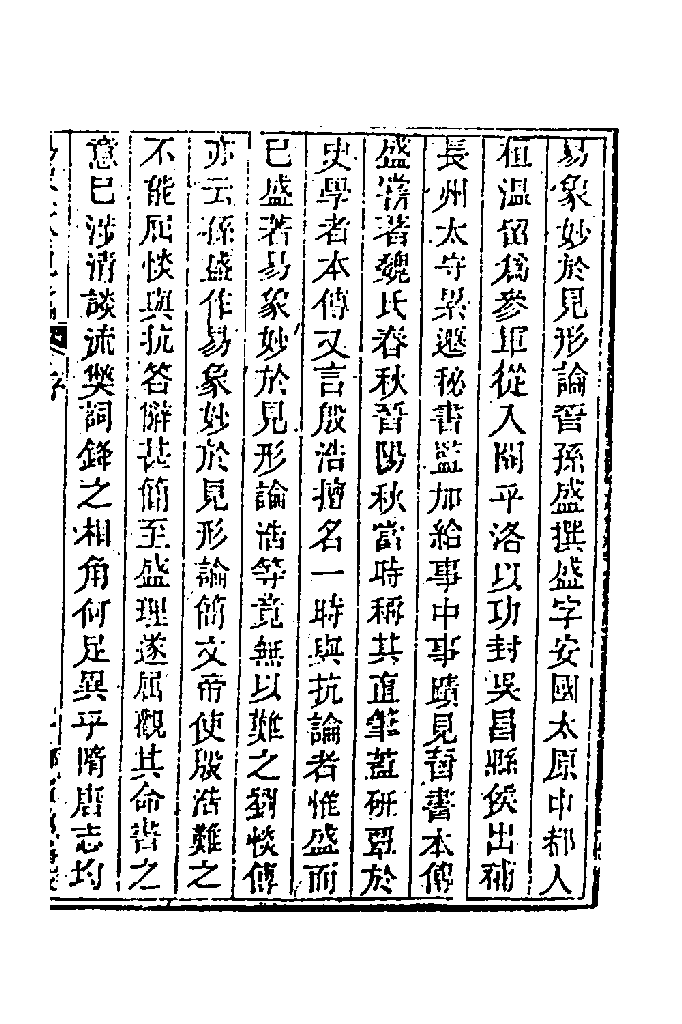 易象妙於見形論晉孫盛撰盛字安國太原中都人
桓溫留為參軍從入關平洛以功封吳昌縣侯出補
長州太守累遷秘書監加給事中事蹟見晉書本傳
盛嘗著魏氏春秋晉陽秋當時稱其直筆蓋研覃於
史學者本傳又言殷浩擅名一時與抗論者惟盛而
已盛著易象妙於見形論浩等竟無以難之劉惔傳
亦云孫盛作易象妙於見形論簡文帝使殷浩難之
不能屈惔與抗答辭甚簡至盛理遂屈觀其命書之
意已涉清談流獘詞鋒之相角何足異乎隋唐志均
序